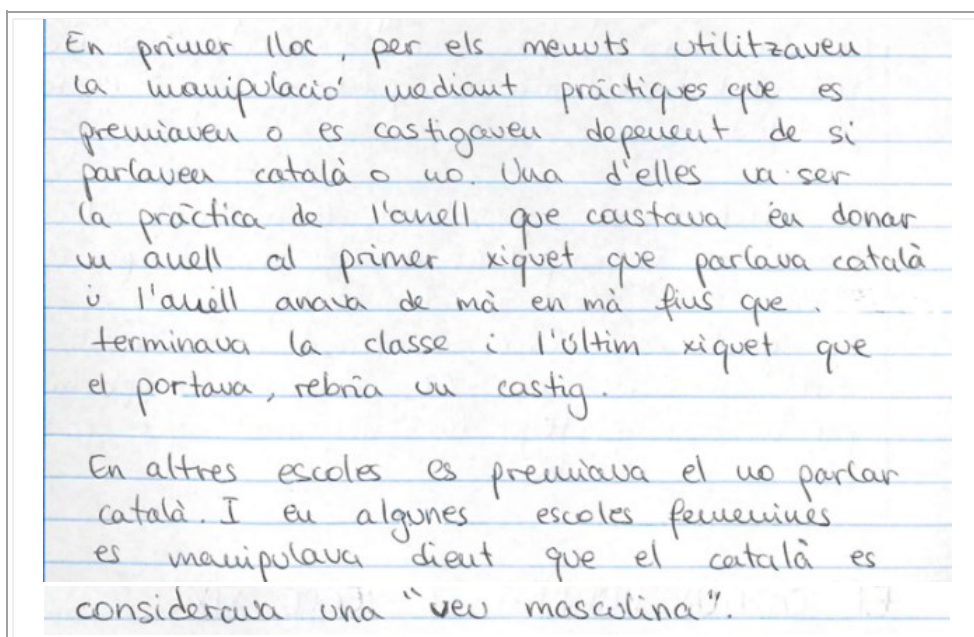 En primer lloc, per els menuts utilitzaven
la manipulació mediant pràctiques que es
premiaven o es castigaven depenent de si
parlaven català o no. Una d'elles va ser
la pràctica de l'anell que constava en donar
un anell al primer xiquet que parlava català
i l'anell anava de mà en mà fins que.
terminava la classe i l'últim xiquet que
el portava, rebria un castig.
En altres escoles es premiava el no parlar
català. I en algunes escoles femenines
es manipulava dient que el català es
considerava una "veu masculina".